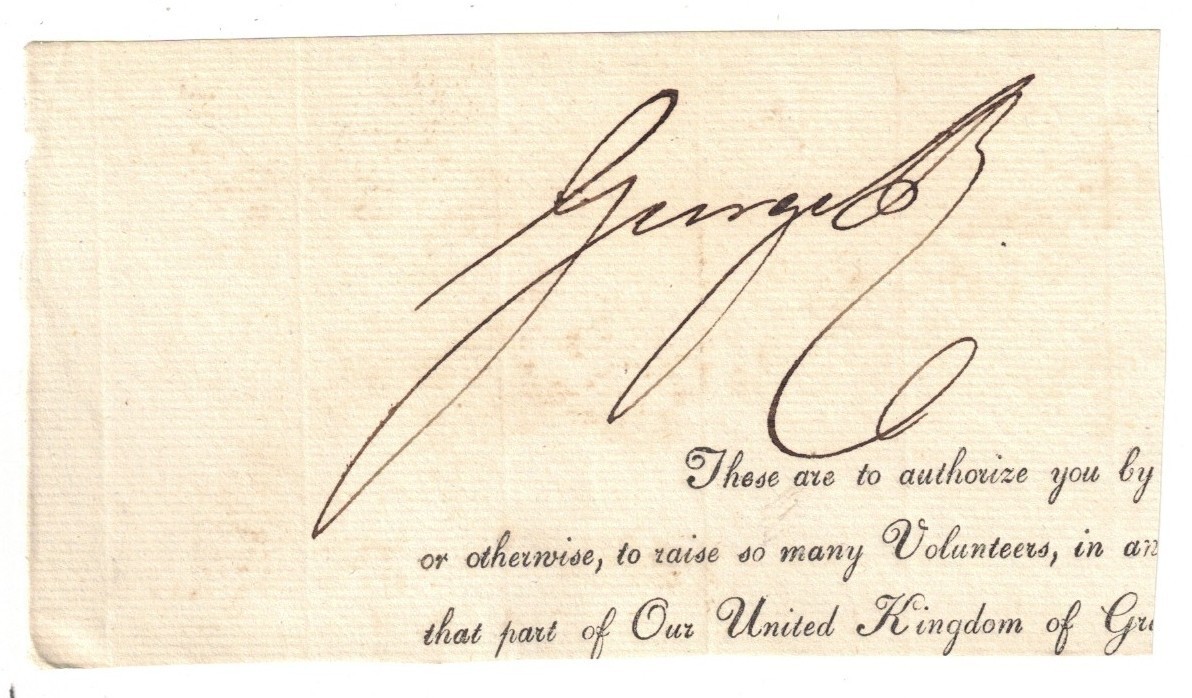 George R
These are to authorize you by
or otherwise, to raise so many Volunteers, in an
that part of Our United Kingdom of Gre